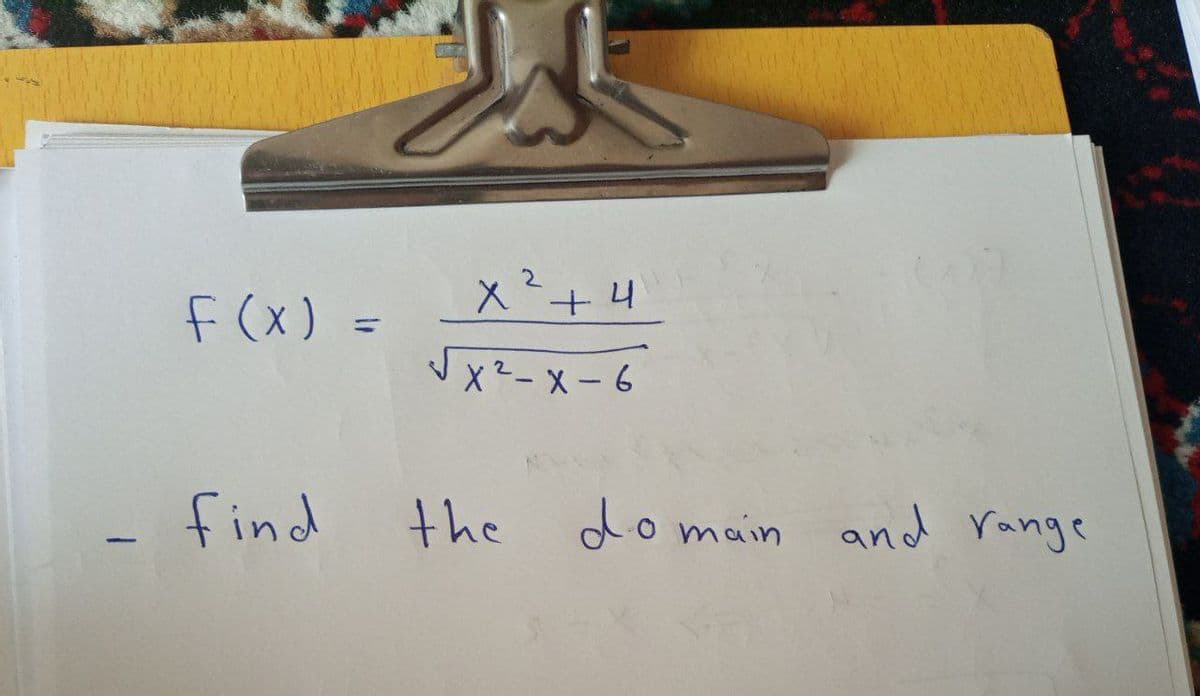 F(x) = x²+4 / √x²-x-6
- find the domain and range